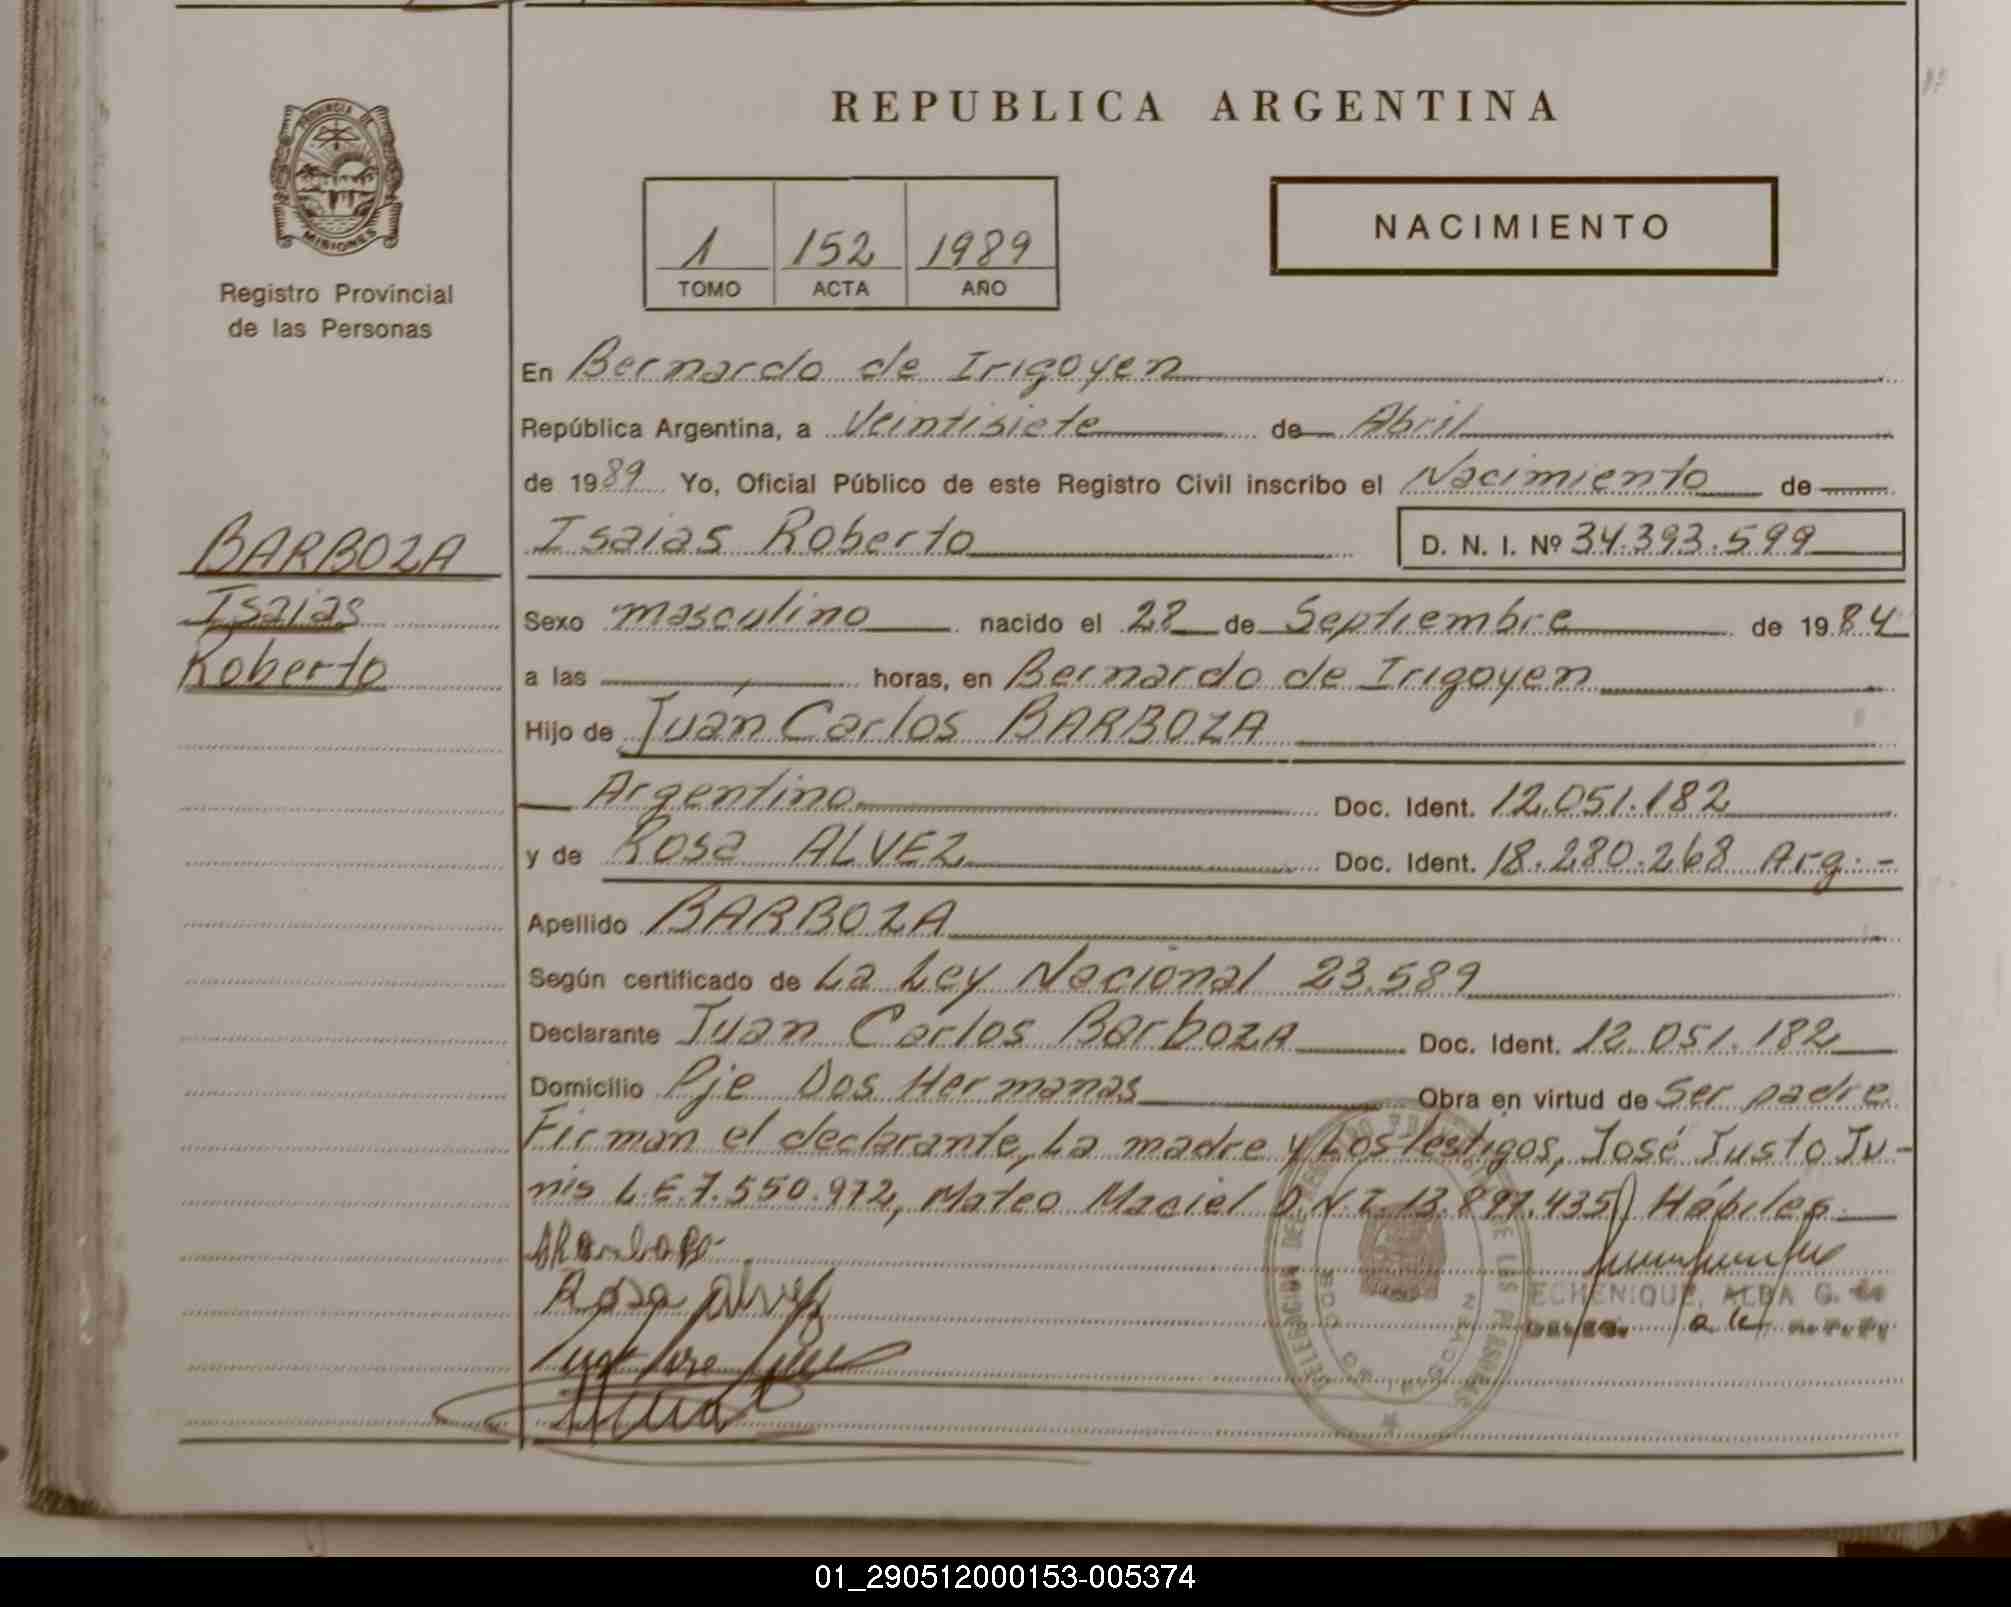 REPUBLICA ARGENTINA
PROVINCIA DE
MISIONES
Registro Provincial
de las Personas
1 152 1989
TOMO ACTA AÑO
NACIMIENTO
En Bernardo de Irigoyen
República Argentina, a Veintisiete de Abril
de 1989 Yo, Oficial Público de este Registro Civil inscribo el Nacimiento de
Isaias Roberto D. N. I. Nº 34.393.599
BARBOZA
Isaias
Roberto
Sexo masculino nacido el 28 de Septiembre de 1984
a las horas, en Bernardo de Irigoyen
Hijo de Juan Carlos BARBOZA
Argentino Doc. Ident. 12.051.182
y de Rosa ALVEZ Doc. Ident. 18.280.268 Arg.-
Apellido BARBOZA
Según certificado de La Ley Nacional 23.589
Declarante Juan Carlos Barboza Doc. Ident. 12.051.182
Domicilio Pje Dos Hermanas Obra en virtud de Ser padre
Firman el declarante, La madre y Los testigos, José Justo Ju-
nis L.E.7.550.972, Mateo Maciel D.N.I.13.897.435 Hábiles
Rosa Alvez
ECHENIQUE, ALBA G. de
DELEGACION DEL REGISTRO DE LAS PERSONAS
BDO. DE IRIGOYEN
01_290512000153-005374